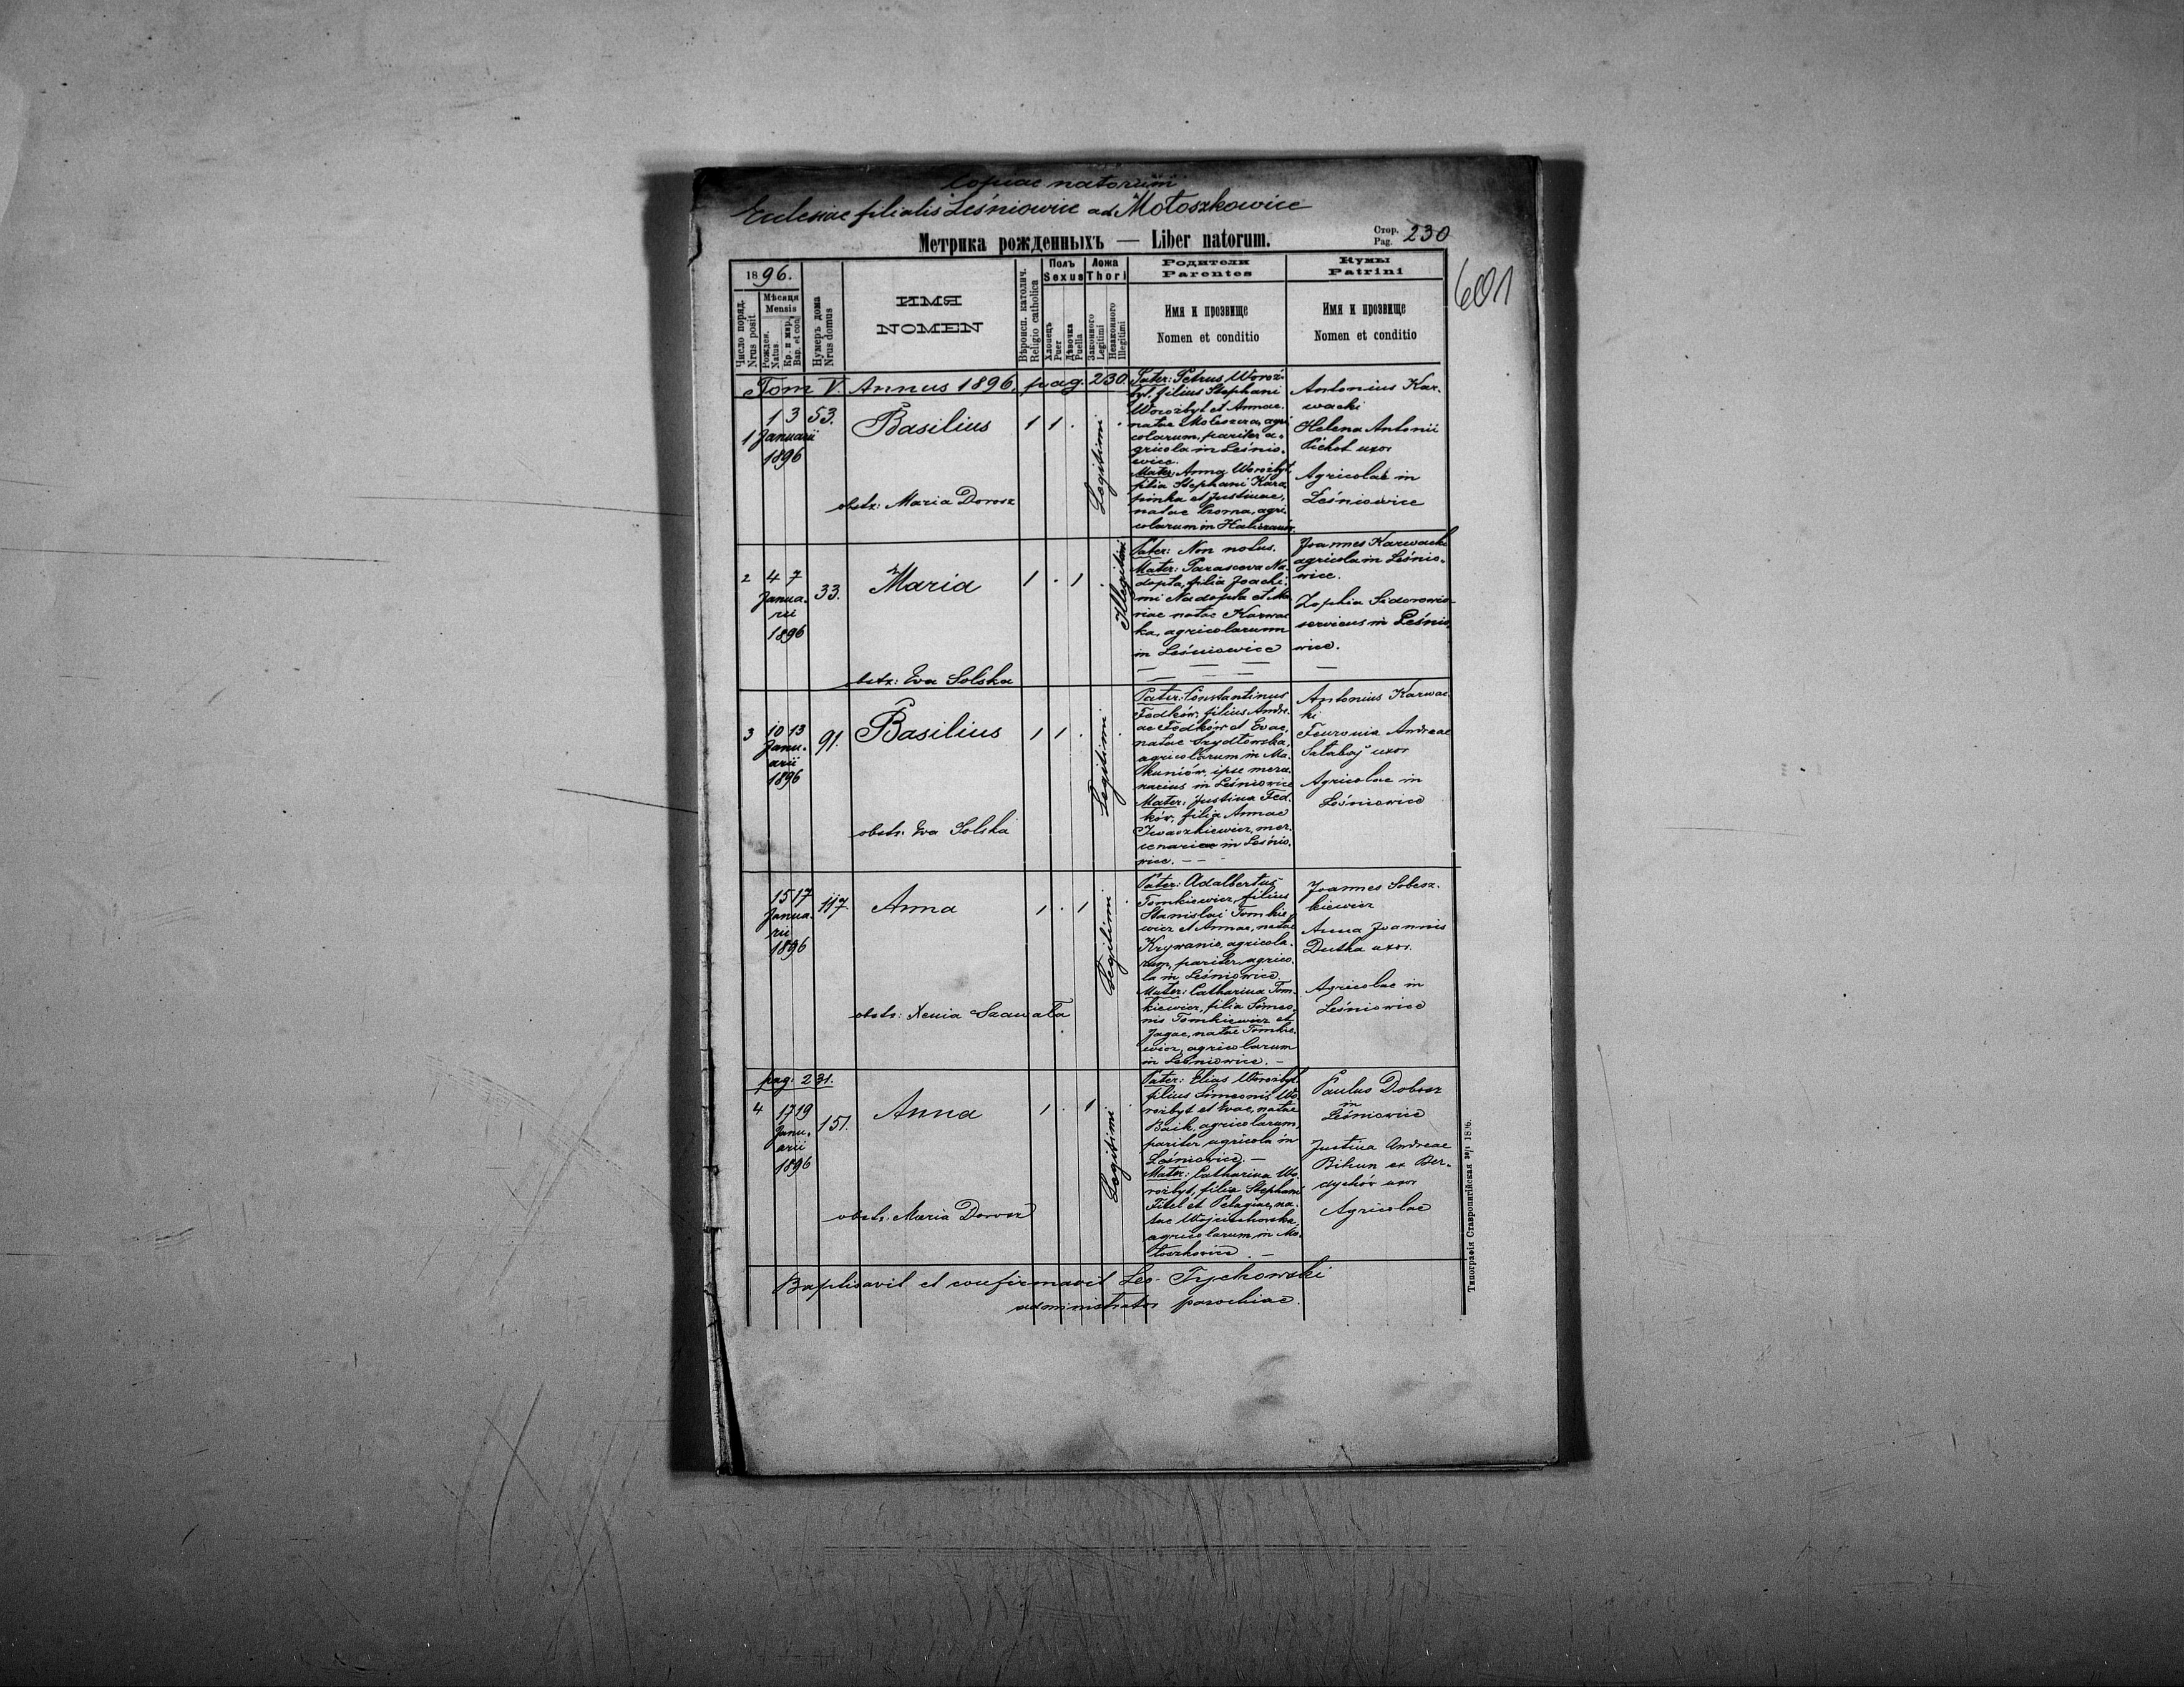 Copiae natorum
Ecclesiae filialis Leśniowice ad Mołoszkowice
Метрика рожденныхъ — Liber natorum.
Стор.
Pag. 230
601
1896.
Число поряд.
Nrus posit
Мѣсяця
Mensis
Рожден.
Natus.
Кр. и мѵр.
Bap. et con.
Нумеръ дома
Nrus domus
ИМЯ
NOMEN
Вѣроисп. католич.
Religio catholica
Полъ
Sexus
Хлопецъ
Puer
Дѣвочка
Puella
Ложа
Thori
Законного
Legitimi
Незаконного
Illegitimi
Родители
Parentes
Имя и прозвище
Nomen et conditio
Кумы
Patrini
Имя и прозвище
Nomen et conditio
Tom V. Annus 1896. pag. 230.
1 1 3 53.
Januarii
1896
Basilius
1 1 .
Legitimi
obstr: Maria Dorosz
Pater: Petrus Woroż-
byt, filius Stephani
Worożbyt et Annae,
natae Moleszcza, agri
colarum, pariter a-
gricola in Leśnio-
wice.
Mater: Anna Worożbyt,
filia Stephani Kara
pinka et Justinae,
natae agri-
colarum in
Antonius Kar-
wacki
Helena Antonii
Pichot uxor
Agricolae in
Leśniowice
2 4 7 33.
Janua-
rii
1896
Maria
1 . 1
Illegitimi
obstr: Eva Solska
Pater: Non notus.
Mater: Parasceva Na
dopta, filia Joachi-
mi Nadopta et Ma
riae natae Karwac
ka, agricolarum
in Leśniowice
Joannes Karwacki
agricola in Leśnio-
wice.
Zophia Sidorowicz
serviens in Leśnio
wice.
3 10 13 91.
Janu-
arii
1896
Basilius
1 1 .
Legitimi
obstr: Eva Solska
Pater: Constantinus
Fedków, filius Andre-
ae Fedków et Evae,
natae Szydłowska,
agricolarum in Ma-
kuniów, ipse merce
narius in Leśniowice
Mater: Justina Fed-
ków, filia Annae
Iwaszkiewicz, mer-
cenariae in Leśnio-
wice. — —
Antonius Karwac-
ki
Feuronia Andreae
Sałabaj uxor
Agricolae in
Leśniowice
15 17 117.
Janua-
rii
1896
Anna
1 . 1
Legitimi
obstr: Xenia Szawała
Pater: Adalbertus
Tomkiewicz, filius
Stanislai Tomkie
wicz et Annae, natae
Krywanio, agricola-
rum, pariter agrico-
la in Leśniowice.
Mater: Catharina Tom-
kiewicz, filia Simeo-
nis Tomkiewicz et
Jagae, natae Tomkie-
wicz, agricolarum
in Leśniowice. —
Joannes Sobesz-
kiewicz
Anna Joannis
Dutka uxor.
Agricolae in
Leśniowice
pag. 231.
4 17 19 151.
Janu-
arii
1896
Anna
1 . 1
Legitimi
obstr: Maria Dorosz
Pater: Elias Worożbyt
filius Simeonis Wo
rożbyt et Evae, natae
Baik, agricolarum,
pariter agricola in
Leśniowice. —
Mater: Catharina Wo-
rożbyt, filia Stephani
Fitel et Pelagiae, na-
tae Wojciechowska
agricolarum in Mo-
łoszkowice. —
Paulus Dobosz
in
Leśniowice
Justina Andreae
Bihun ex Ber-
dychów uxor
Agricolae
Baptisavit et confirmavit Leo Tychowski
administrator parochiae.
Типографія Ставропигійская 1896.